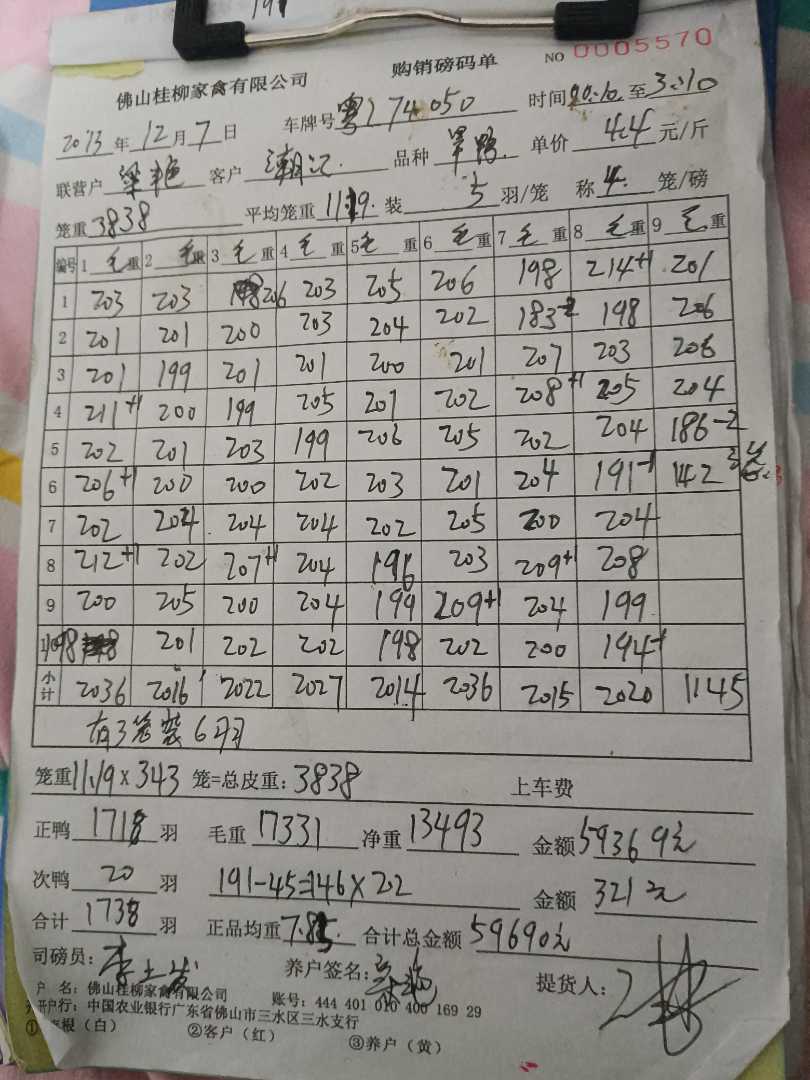 191
佛山桂柳家禽有限公司 购销磅码单 NO 0005570
2013年12月7日 车牌号粤 74050 时间 至3:10
联营户梁艳 客户潮汉 品种 单价4.4元/斤
笼重3838 平均笼重11.19 装5羽/笼 称4笼/磅
编号 1毛重 2毛重 3毛重 4毛重 5毛重 6毛重 7毛重 8毛重 9毛重
1 203 203 206 203 205 206 198 214+1 201
2 201 201 200 203 204 202 183-2 198 206
3 201 199 201 201 200 201 207 203 206
4 211+1 200 199 205 201 202 208+1 205 204
5 202 201 203 199 206 205 202 204 186-2
6 206+1 200 200 202 203 201 204 191-1 142 3笼
7 202 204 204 204 202 205 200 204
8 212+1 202 207+1 204 196 203 209+1 208
9 200 205 200 204 199 209+1 204 199
10 198 201 202 202 198 202 200 194-1
小计 2036 2016 2022 2027 2014 2036 2015 2020 1145
有3笼装6羽
笼重11.19×343笼=总皮重:3838 上车费
正鸭1718羽 毛重17331 净重13493 金额59369元
次鸭20羽 191-45=146×2.2 金额321元
合计1738羽 正品均重7.85 合计总金额59690元
司磅员: 养户签名:梁艳 提货人:
户 名:佛山桂柳家禽有限公司 账号:444 401 010 400 169 29
开户行:中国农业银行广东省佛山市三水区三水支行
①存根(白) ②客户(红) ③养户(黄)